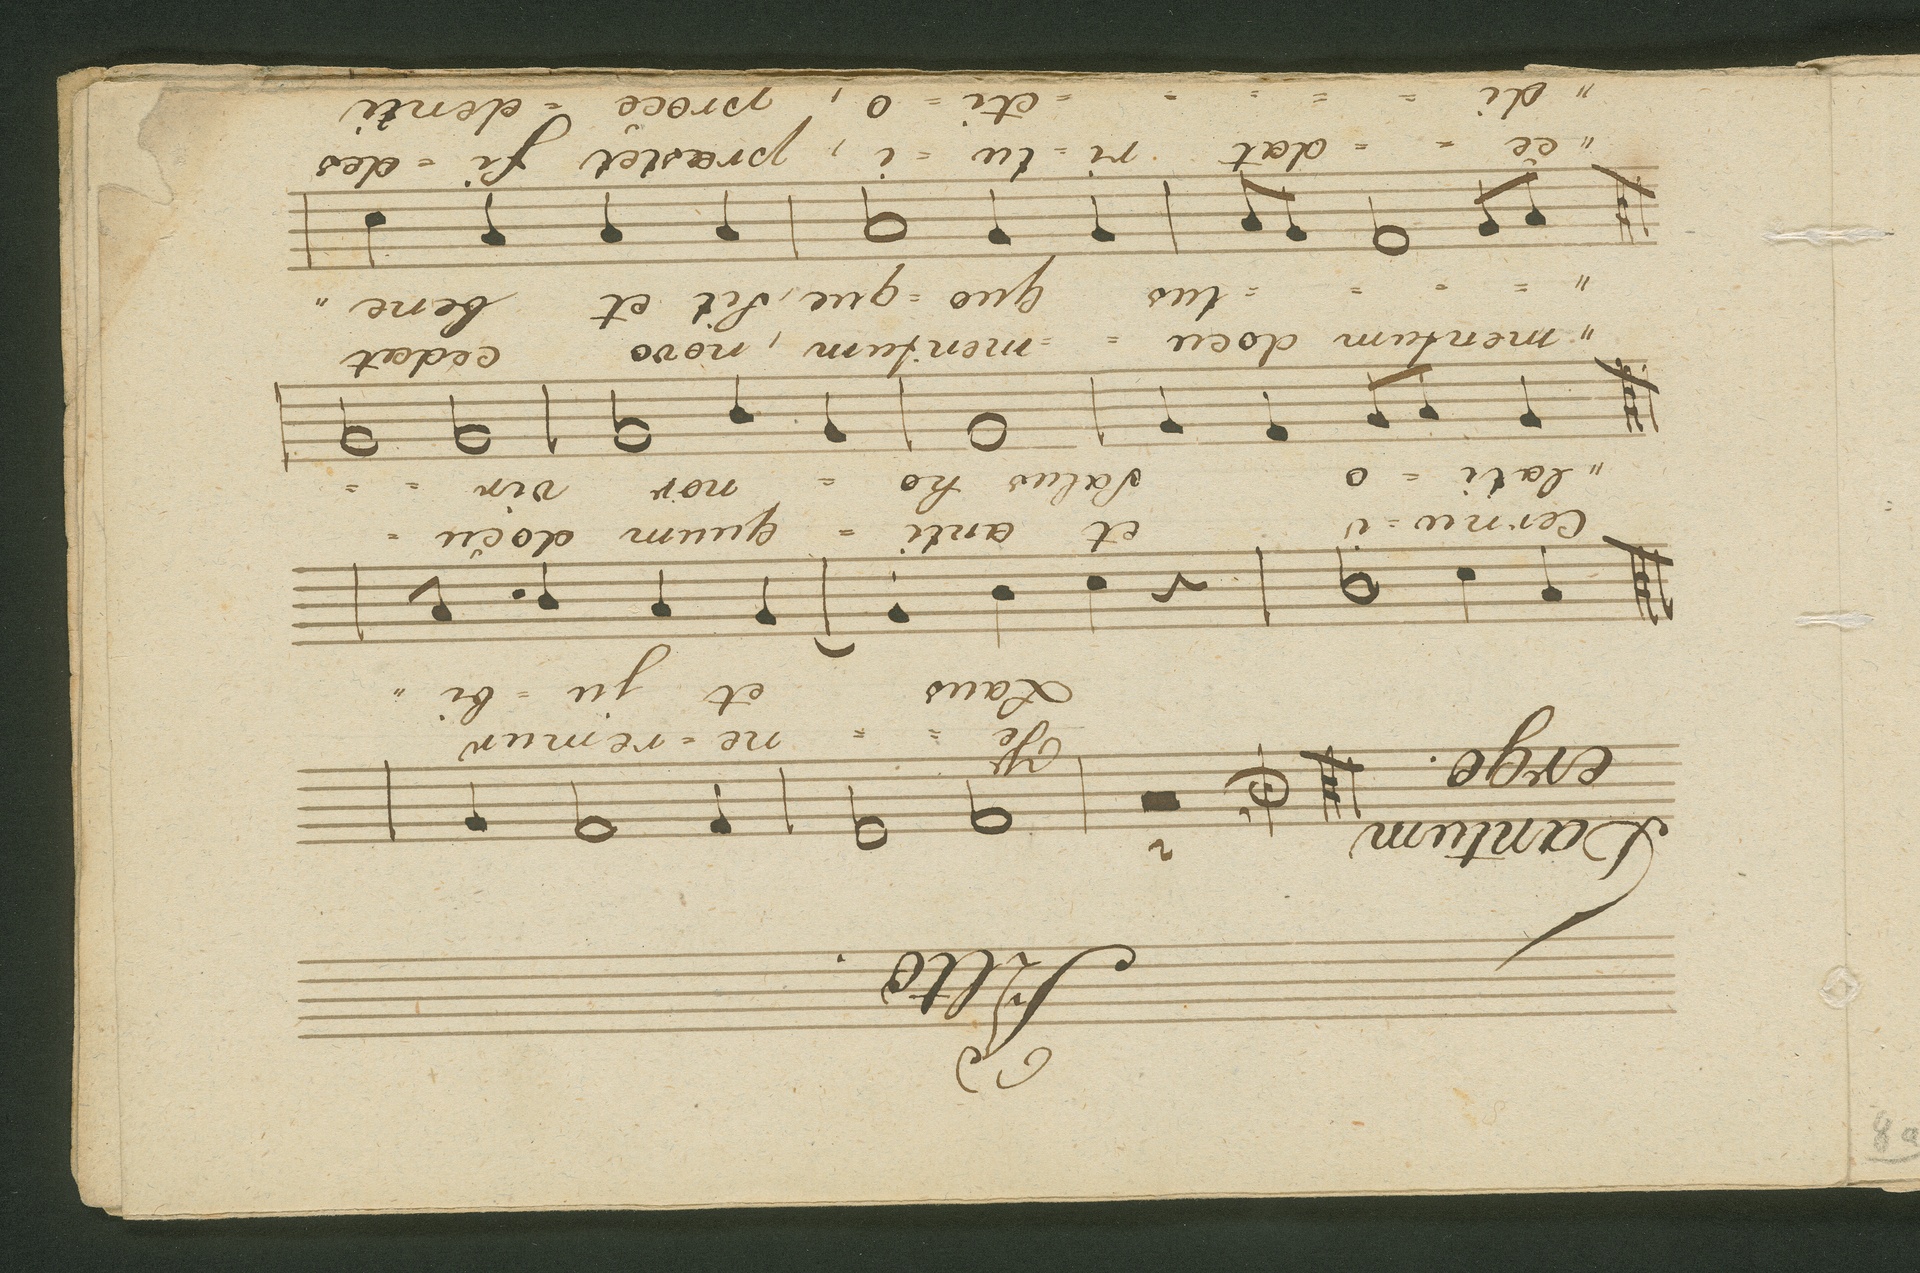 Alto.
Tantum
ergo.
2
Ve = = ne = remur
Laus et ju = bi "
Cernu = i et anti = quum docu =
"lati = o Salus ho = nor vir = =
"mentum docu = = mentum, novo cedat
" = = = = tus quo = que, Sit et bene "
"ce = = dat ri = tu = i, præstet fi = des
"di = = = = = cti = o, proce = denti
8a